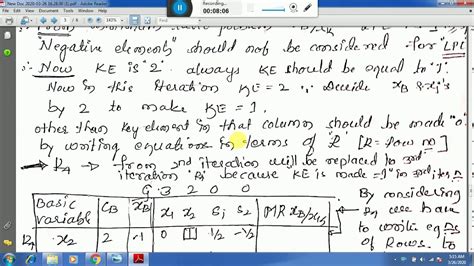 New Doc 2020-03-26 16.28.00 (1).pdf - Adobe Reader
Recording...
00:08:06
Negative elements should not be considered for "LPP"
Now KE is "2". always KE should be equal to "1".
Now in this iteration KE = 2 Divide XB & Xi's
by 2 to make KE = 1.
other than key element in that column should be made "0"
by writing equations in terms of 'R' [R = Row no]
R4 → from 2nd iteration will be replaced to 3rd
iteration R4 because KE is made = 1 in 3rd
Cj 3 2 0 0
Basic variable CB XB x1 x2 S1 S2 MR XB/
R4 x2 2 -1 0 1/2 -1/2
By considering
R4 we have
to write eqns
of Rows to
5:15 AM
3/26/2020